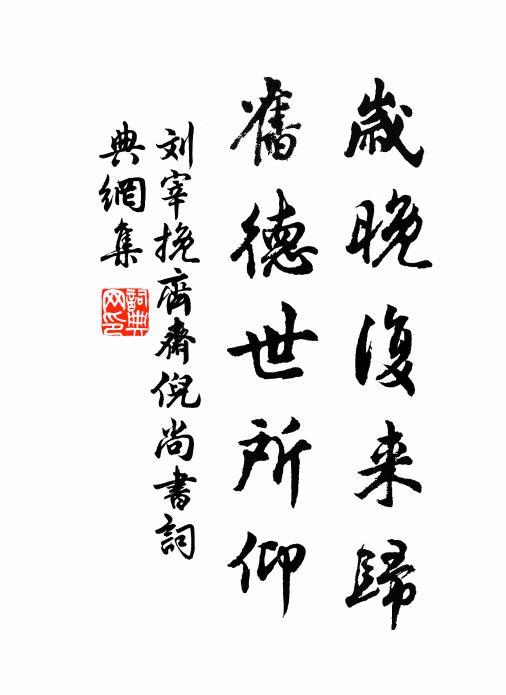 歲晚復来歸
舊德世所仰
刘宰挽齊齋倪尚書詞
典網集
詞典
网印